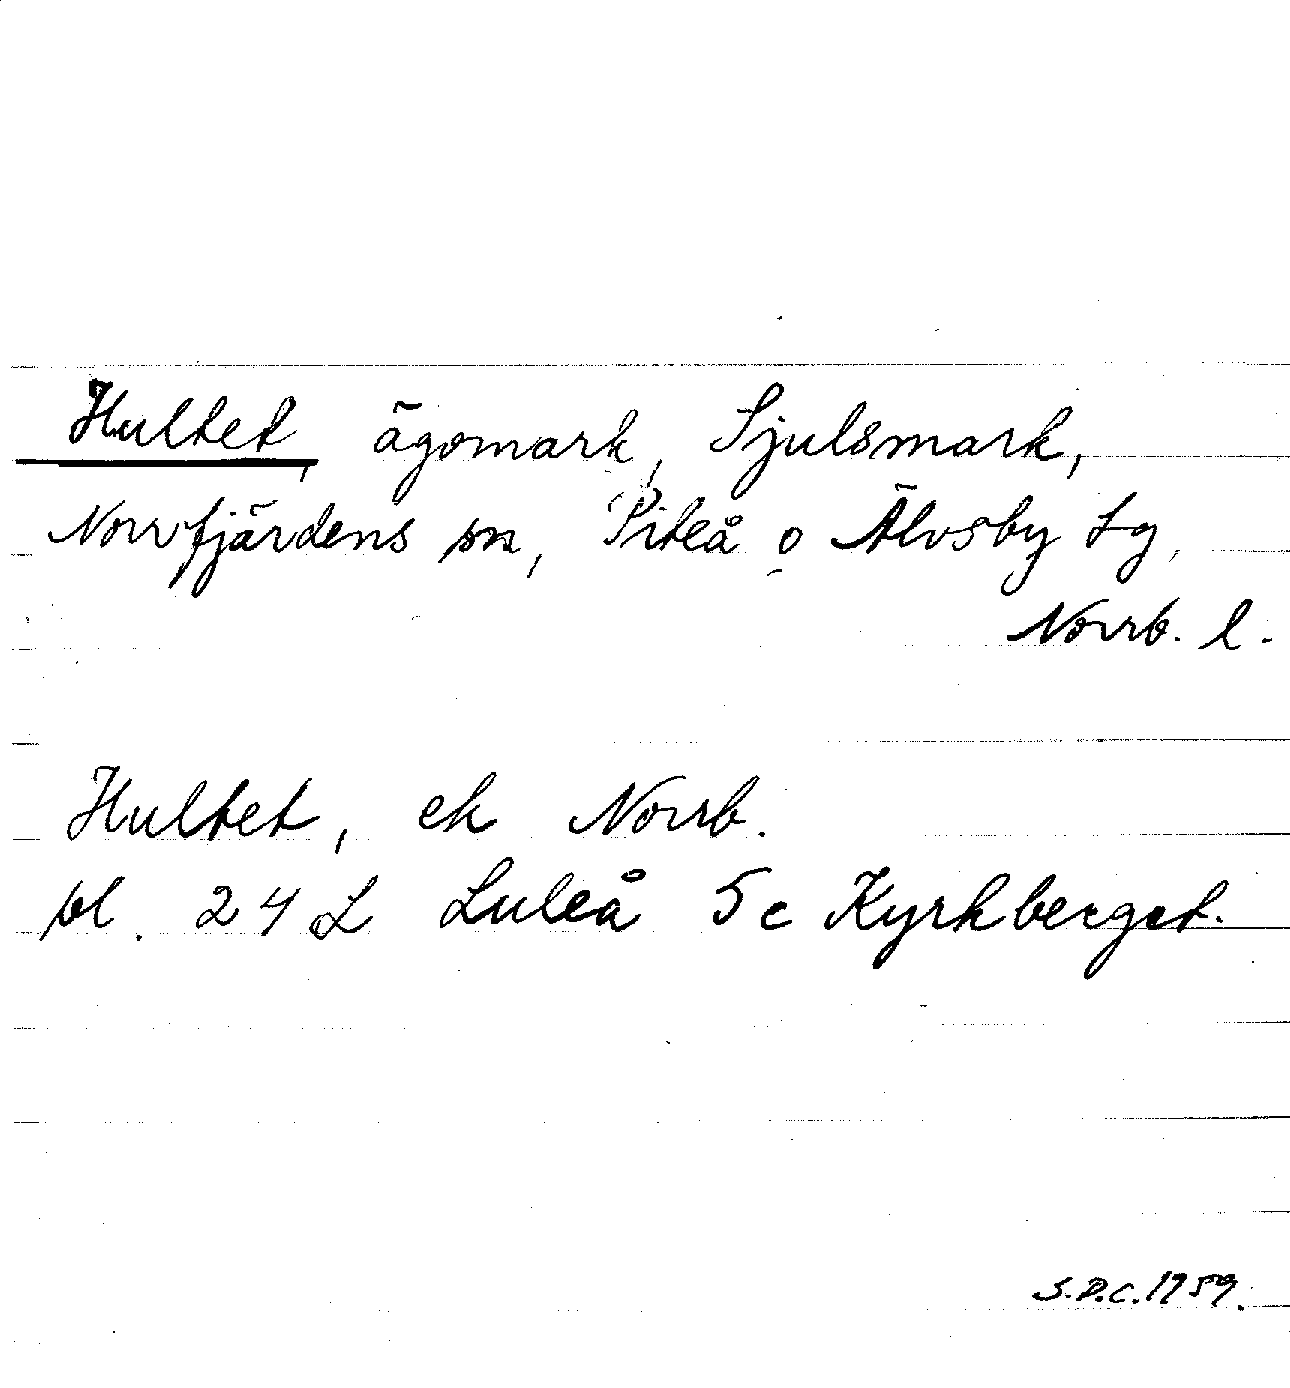 Hultet, ägomark, Sjulsmark,
Norrfjärdens sn, Piteå o Älvsby tg,
Norrb. l.
Hultet, ek Norrb.
bl. 24 L Luleå 5c Kyrkberget.
S.D.C. 1959.